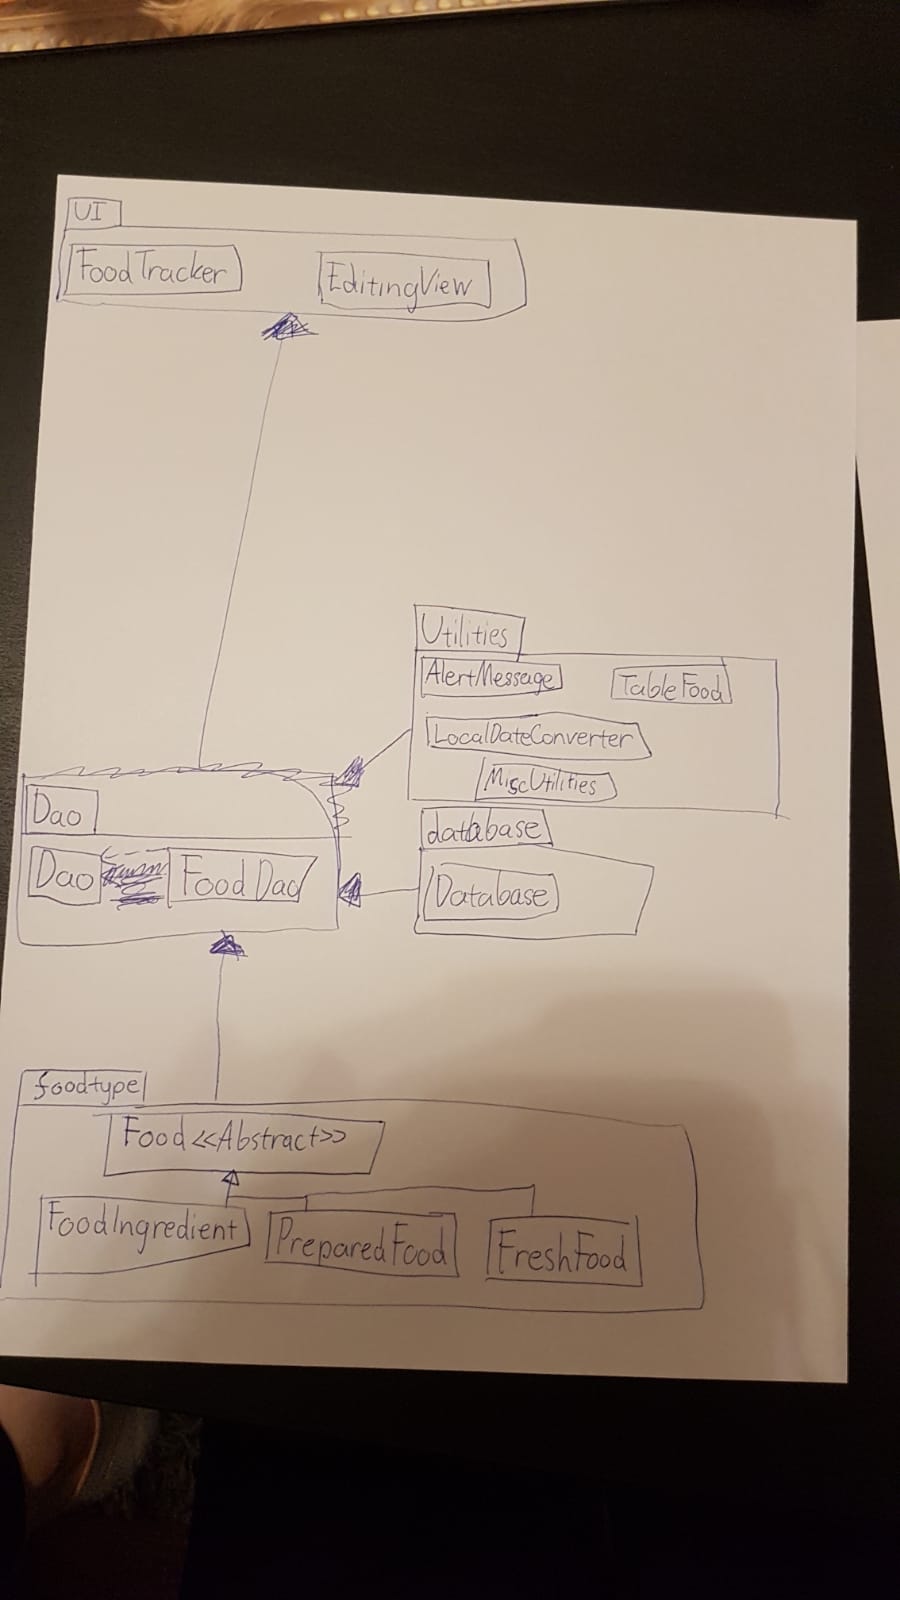 UI
FoodTracker
EditingView
Utilities
AlertMessage
TableFood
LocalDateConverter
MiscUtilities
Dao
Dao
FoodDao
database
Database
foodtype
Food <<Abstract>>
FoodIngredient
PreparedFood
FreshFood